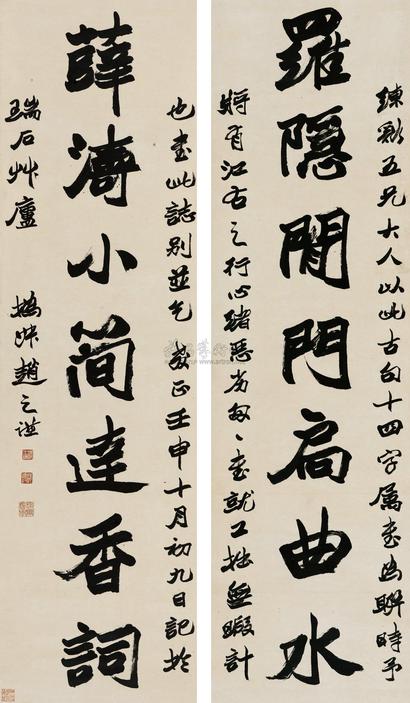 五兄大人以此古句十四字属書為聯時予
羅隱閒門扃曲水
將有江右之行心緒惡劣匆、書就工拙無暇計
也書此誌別並乞教正壬申十月初九日記於
薛濤小简達香詞
瑞石艸廬 撝叔趙之謙